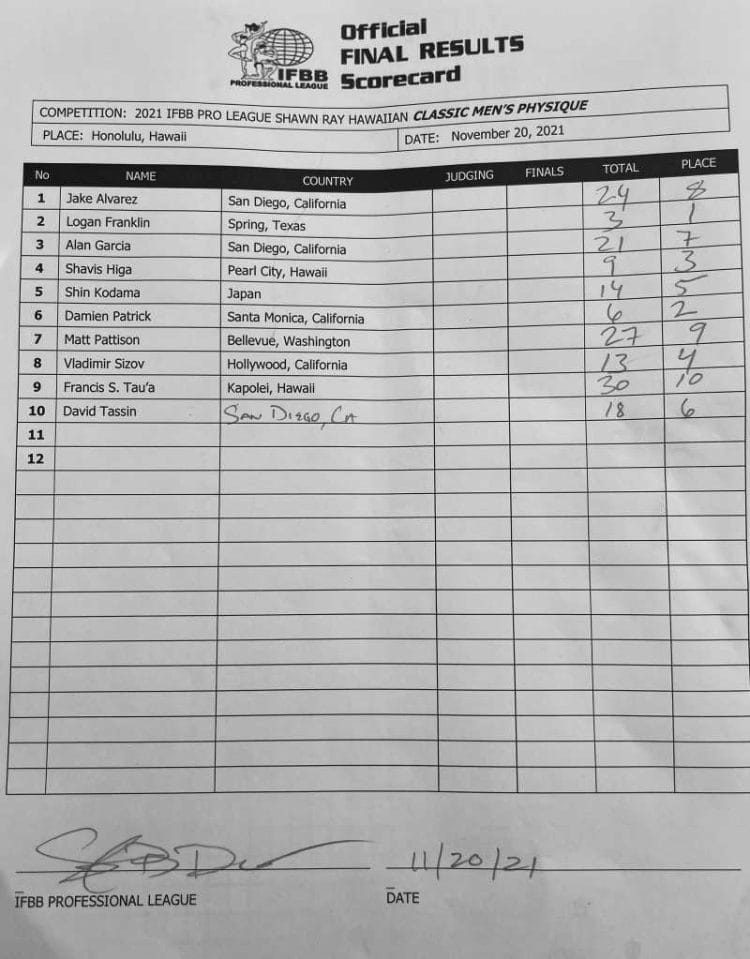 Official
FINAL RESULTS
Scorecard
IFBB
PROFESSIONAL LEAGUE
COMPETITION: 2021 IFBB PRO LEAGUE SHAWN RAY HAWAIIAN CLASSIC MEN'S PHYSIQUE
PLACE: Honolulu, Hawaii DATE: November 20, 2021
No NAME COUNTRY JUDGING FINALS TOTAL PLACE
1 Jake Alvarez San Diego, California 24 8
2 Logan Franklin Spring, Texas 3 1
3 Alan Garcia San Diego, California 21 7
4 Shavis Higa Pearl City, Hawaii 9 3
5 Shin Kodama Japan 14 5
6 Damien Patrick Santa Monica, California 6 2
7 Matt Pattison Bellevue, Washington 27 9
8 Vladimir Sizov Hollywood, California 13 4
9 Francis S. Tau'a Kapolei, Hawaii 30 10
10 David Tassin San Diego, CA 18 6
11
12
11/20/21
IFBB PROFESSIONAL LEAGUE DATE